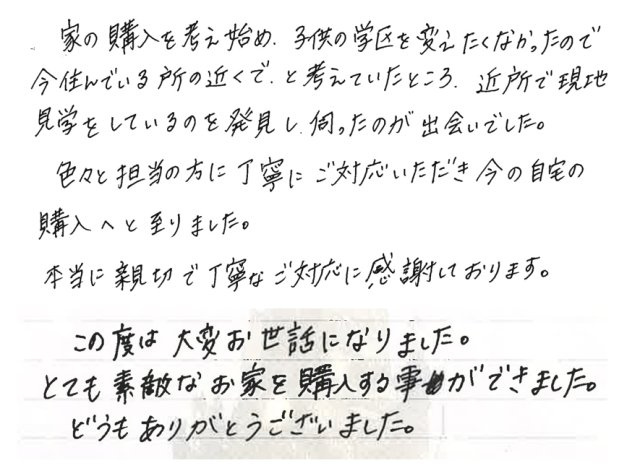 家の購入を考え始め、子供の学区を変えたくなかったので
今住んでいる所の近くで、と考えていたところ、近所で現地
見学をしているのを発見し、伺ったのが出会いでした。
色々と担当の方に丁寧にご対応いただき今の自宅の
購入へと至りました。
本当に親切で丁寧なご対応に感謝しております。
この度は大変お世話になりました。
とても素敵なお家を購入する事ができました。
どうもありがとうございました。